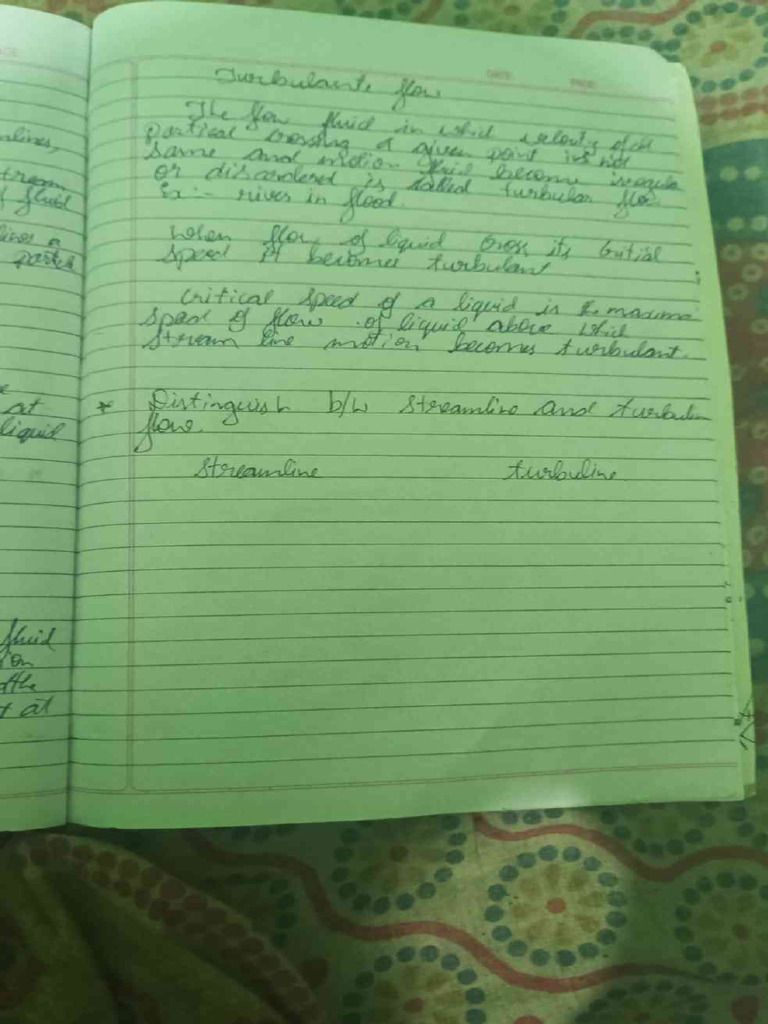 DATE PAGE
Turbulante flow
The flow fluid in which velocity of all
partical crossing a given point is not
same and motion fluid become irregular
or disordered is called turbulan flow.
Ex :- rivers in flood.
When flow of liquid cross its critial
speed it becomes turbulant
Critical speed of a liquid is the maximu
speed of flow of liquid above which
stream line motion becomes turbulant.
* Distinguish b/w streamline and turbulin
flow.
streamline turbuline
nlines,
tream
f fluid
lines a
at
liquid
fluid
ion
the
t at